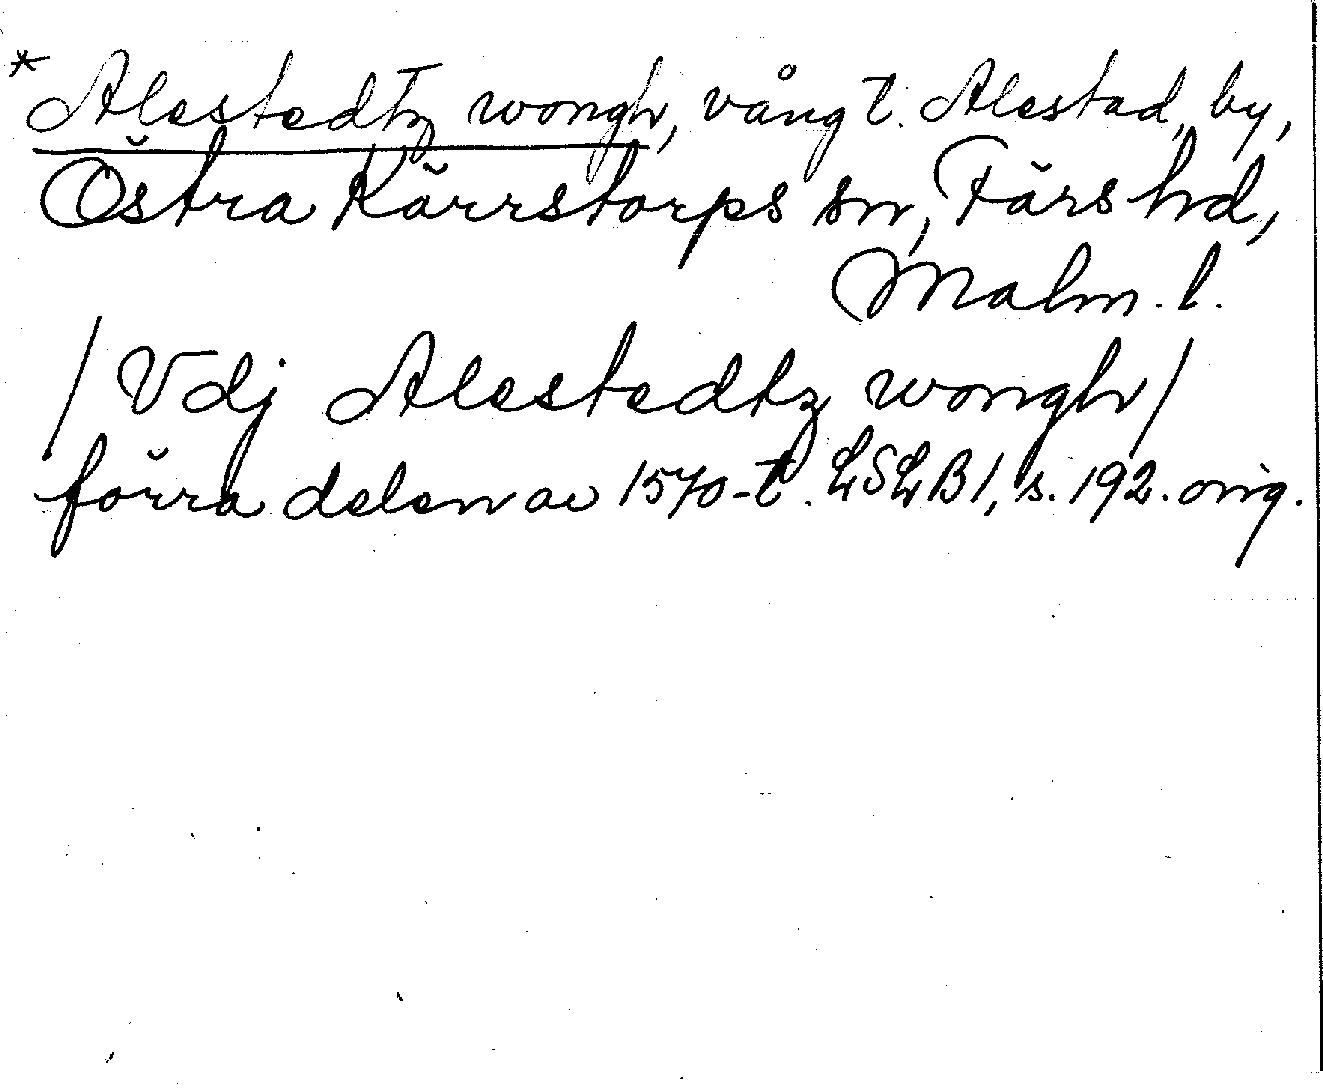 *Alestedtz wongh, vång t. Alestad, by,
Östra Kärrstorps sn, Färs hd,
Malm. l.
/Vdj Alestedtz wongh/
förra delen av 1570-t. LSLB1, s. 192. orig.